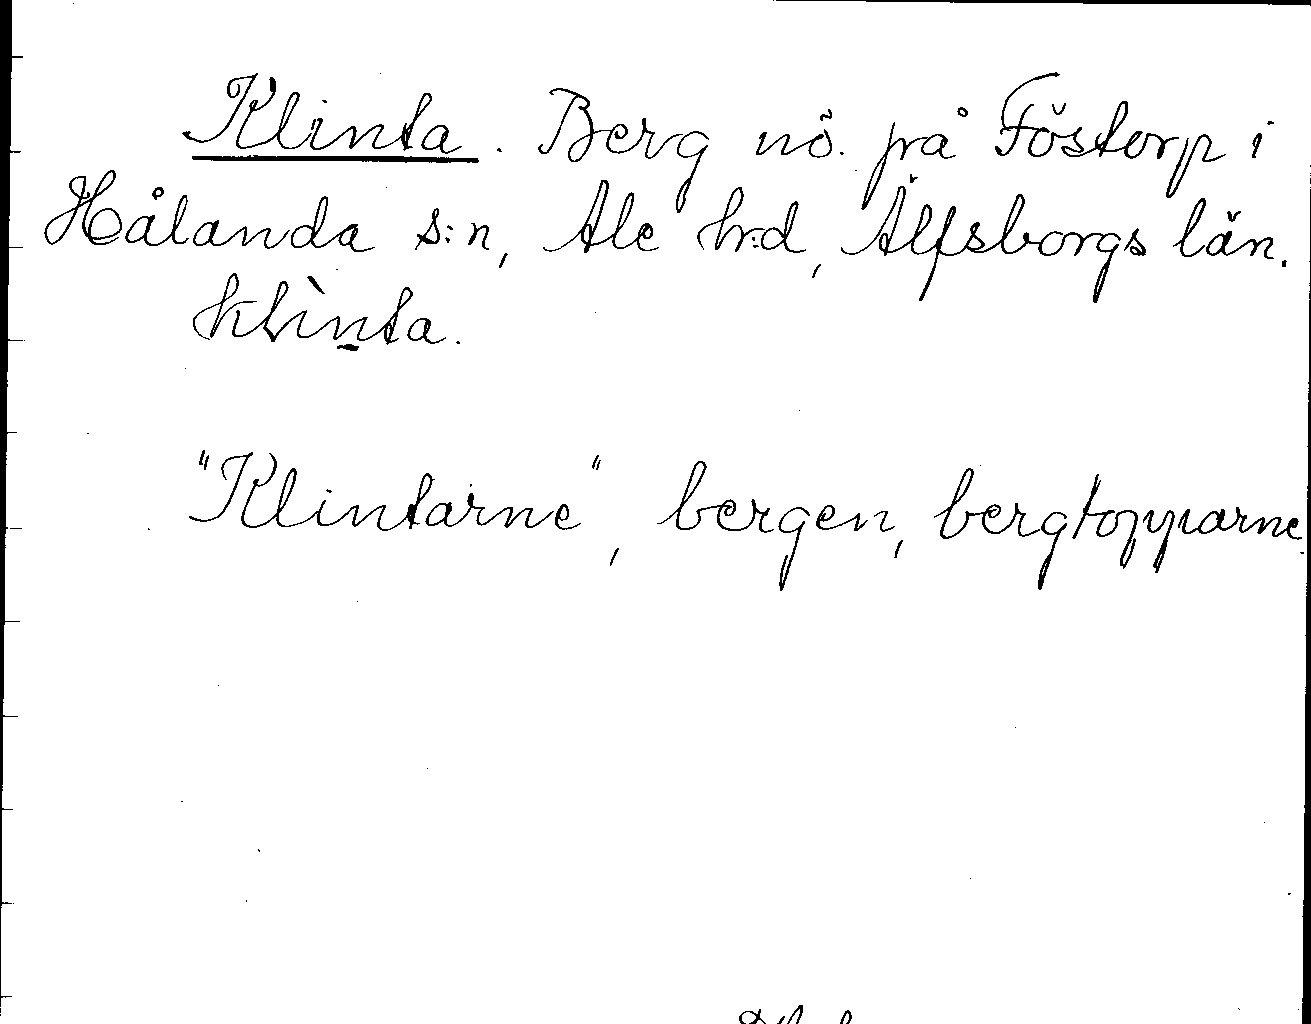 Klinta. Berg nö. på Föstorp i
Hålanda s:n, Ale h:d, Älfsborgs län.
klìn̠ta.
"Klintarne", bergen, bergtopparne